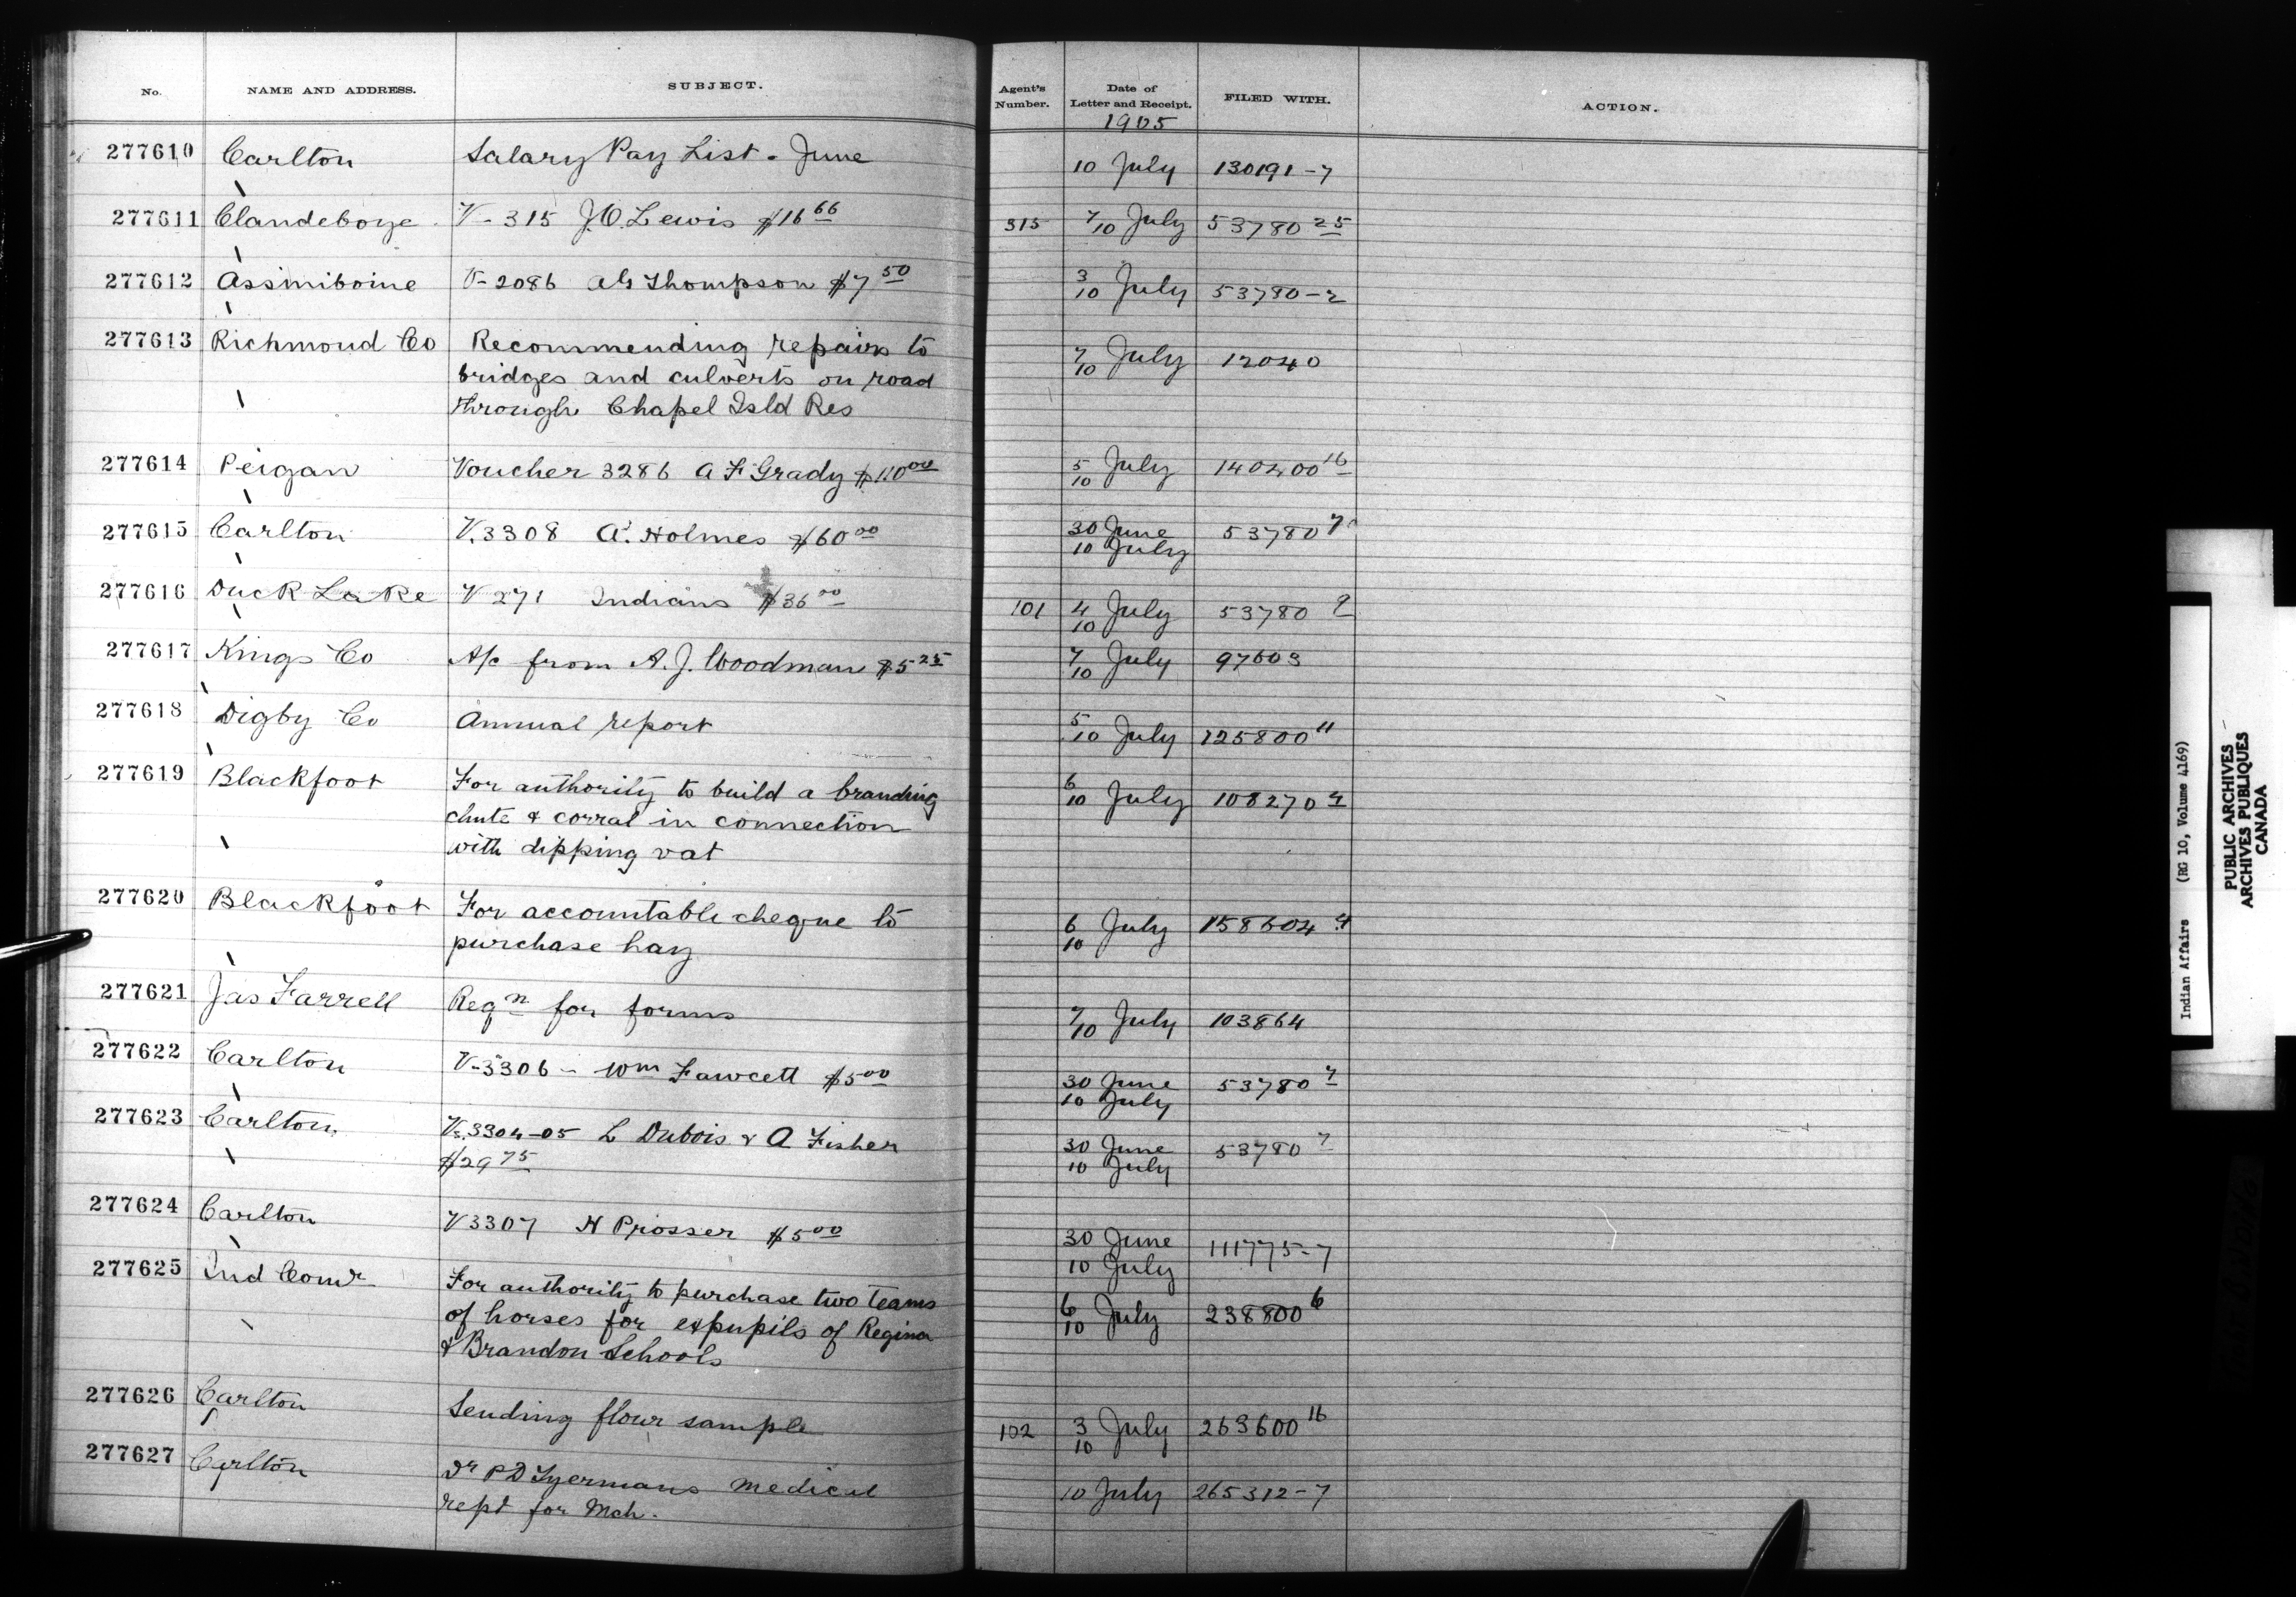 No. NAME AND ADDRESS. SUBJECT. Agent's Number. Date of Letter and Receipt. FILED WITH. ACTION.
1905
277610 Carlton Salary Pay List - June 10 July 130191-7
277611 Clandeboye V-315 J.O. Lewis $16 66 315 7/10 July 53780 25
277612 Assiniboine V-2086 A G Thompson $7 50 3/10 July 53780-2
277613 Richmond Co Recommending repairs to 7/10 July 12040
bridges and culverts on road
through Chapel Isld Res
277614 Peigan Voucher 3286 A F Grady $110 00 5/10 July 140400 16
277615 Carlton V.3308 A. Holmes $60 00 30 June 53780 7
10 July
277616 Duck Lake V 271 Indians $36 00 101 4/10 July 53780 9
277617 Kings Co A/c from A. J. Woodman $5 25 7/10 July 97603
277618 Digby Co Annual report 5/10 July 125800 11
277619 Blackfoot For authority to build a branding 6/10 July 108270 4
chute & corral in connection
with dipping vat
277620 Blackfoot For accountable cheque to 6/10 July 158604 4
purchase hay
277621 Jas Farrell Reqn for forms 7/10 July 103864
277622 Carlton V-3306 - Wm Fawcett $5 00 30 June 53780 7
10 July
277623 Carlton Vs.3304-05 L Dubois & A Fisher 30 June 53780 7
$29 75 10 July
277624 Carlton V3307 H Prosser $5 00 30 June 111775-7
10 July
277625 Ind Comr For authority to purchase two teams 6/10 July 238800 6
of horses for expupils of Regina
& Brandon Schools
277626 Carlton Sending flour sample 102 3/10 July 263600 16
277627 Carlton Dr P D Tyermans medical 10 July 265312-7
rept for Mch.
Indian Affairs (RG 10, Volume 4169)
PUBLIC ARCHIVES
ARCHIVES PUBLIQUES
CANADA